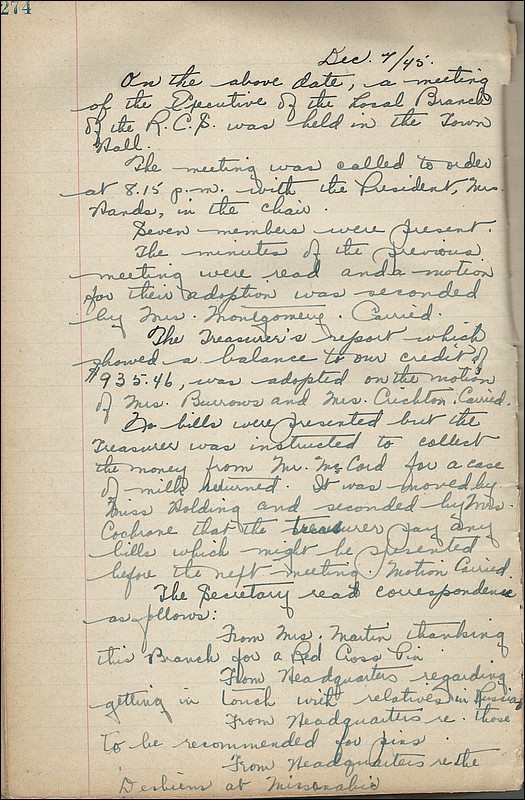 274
Dec. 7/45.
On the above date, a meeting
of the Executive of the Local Branch
of the R.C.S. was held in the Town
Hall.
The meeting was called to order
at 8.15 p.m. with the President, Mrs.
Hands, in the chair.
Seven members were present.
The minutes of the previous
meeting were read and a motion
for their adoption was seconded
by Mrs. Montgomery. Carried.
The Treasurer's report which
showed a balance to our credit of
$935.46, was adopted on the motion
of Mrs. Burrows and Mrs. Crichton. Carried.
No bills were presented but the
Treasurer was instructed to collect
the money from Mr. McCord for a case
of milk returned. It was moved by
Miss Holding and seconded by Mrs.
Cochrane that the treasurer pay any
bills which might be presented
before the next meeting. Motion Carried.
The Secretary read correspondence
as follows:
From Mrs. Martin thanking
this Branch for a Red Cross Pin
From Headquarters regarding
getting in touch with relatives in Russia
From Headquarters re. those
to be recommended for pins.
From Headquarters re the
at Missanabie